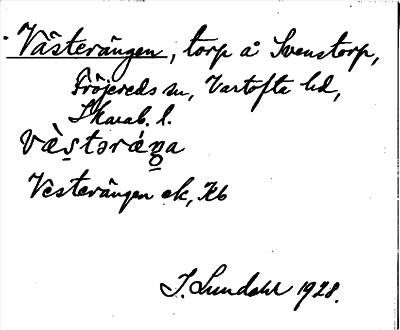 Västerängen, torp å Svenstorp,
Fröjereds sn, Vartofta hd,
Skarab. l.
væ̀s̠tərǽŋa
Västerängen ek, Kb
I. Lundahl 1928.